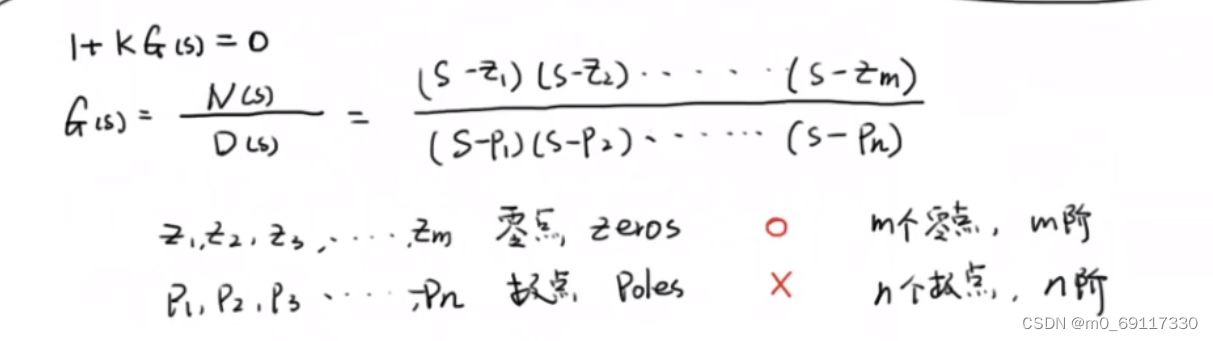 1+KG(s)=0
G(s) = N(s)/D(s) = (S-z₁)(S-z₂)······(S-zm)/(S-p₁)(S-p₂)······(S-pn)
z₁,z₂,z₃,·····,zm 零点, zeros O m个零点, m阶
p₁,p₂,p₃·····,pn 极点, Poles X n个极点, n阶
CSDN @m0_69117330